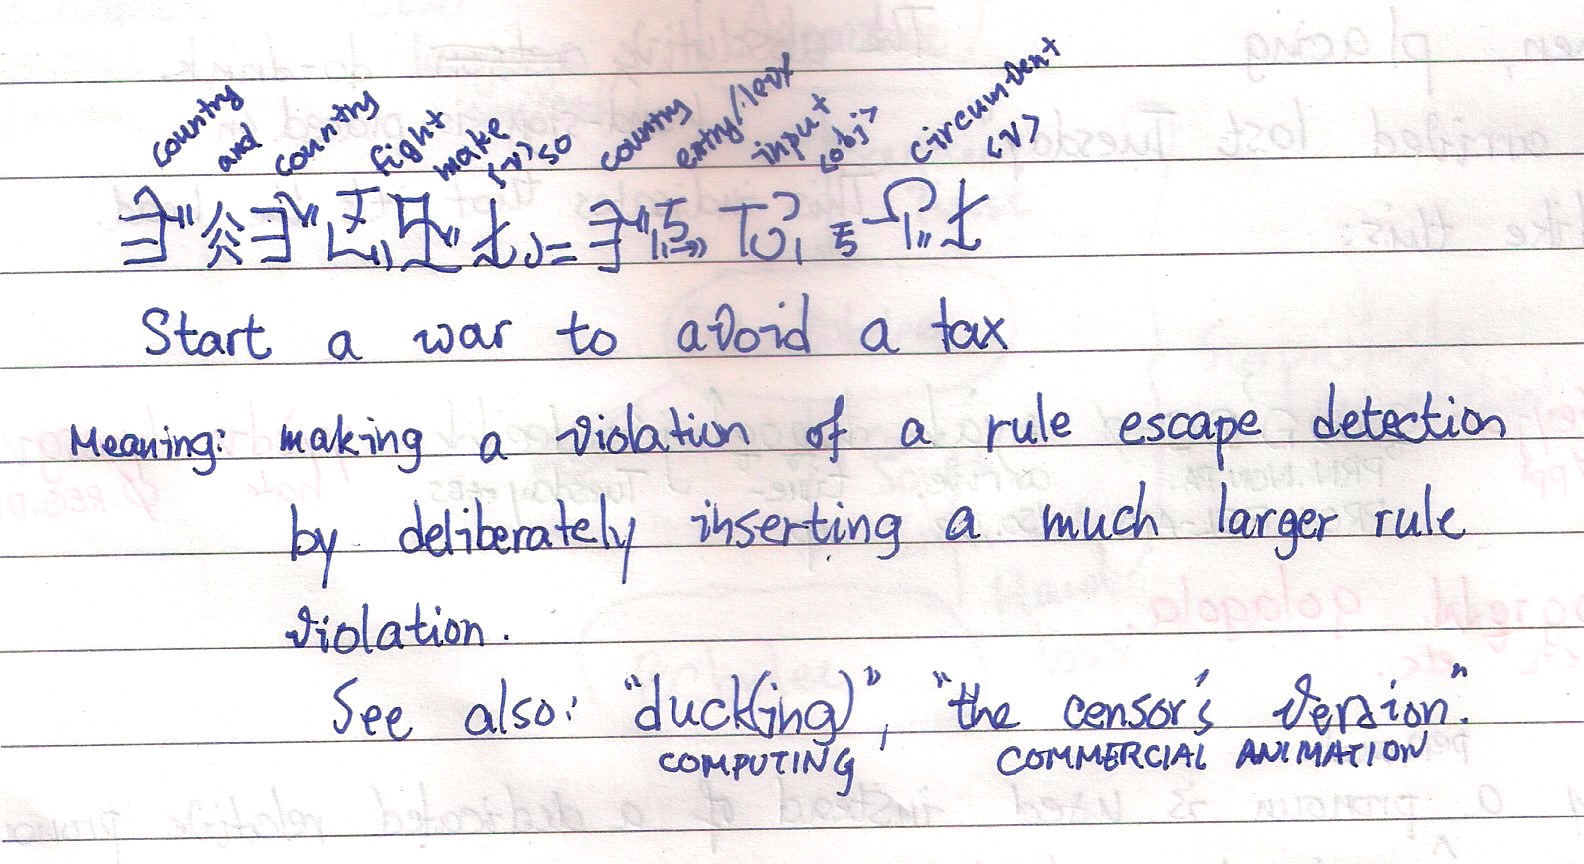 country and country fight make <v> so country entry/levy input <obj> circumvent <v>
Start a war to avoid a tax
Meaning: making a violation of a rule escape detection
by deliberately inserting a much larger rule
violation.
See also: "duck(ing)", "the censor's version."
COMPUTING COMMERCIAL ANIMATION